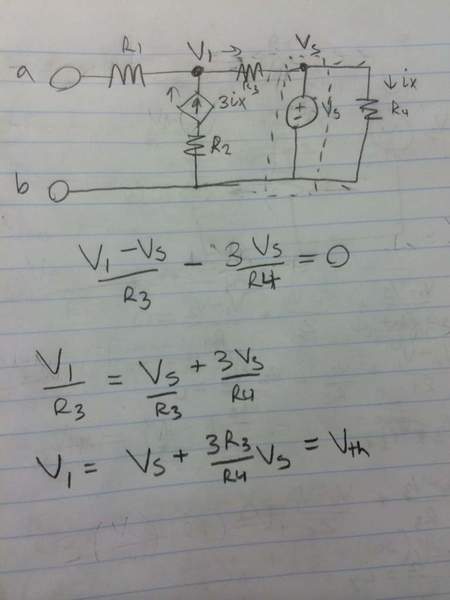 R1 V1 → Vs
a R3 ↓ ix
↑ 3ix + - Vs R4
R2
b
(V1 - Vs)/R3 - 3 Vs/R4 = 0
V1/R3 = Vs/R3 + 3Vs/R4
V1 = Vs + 3R3/R4 Vs = Vth